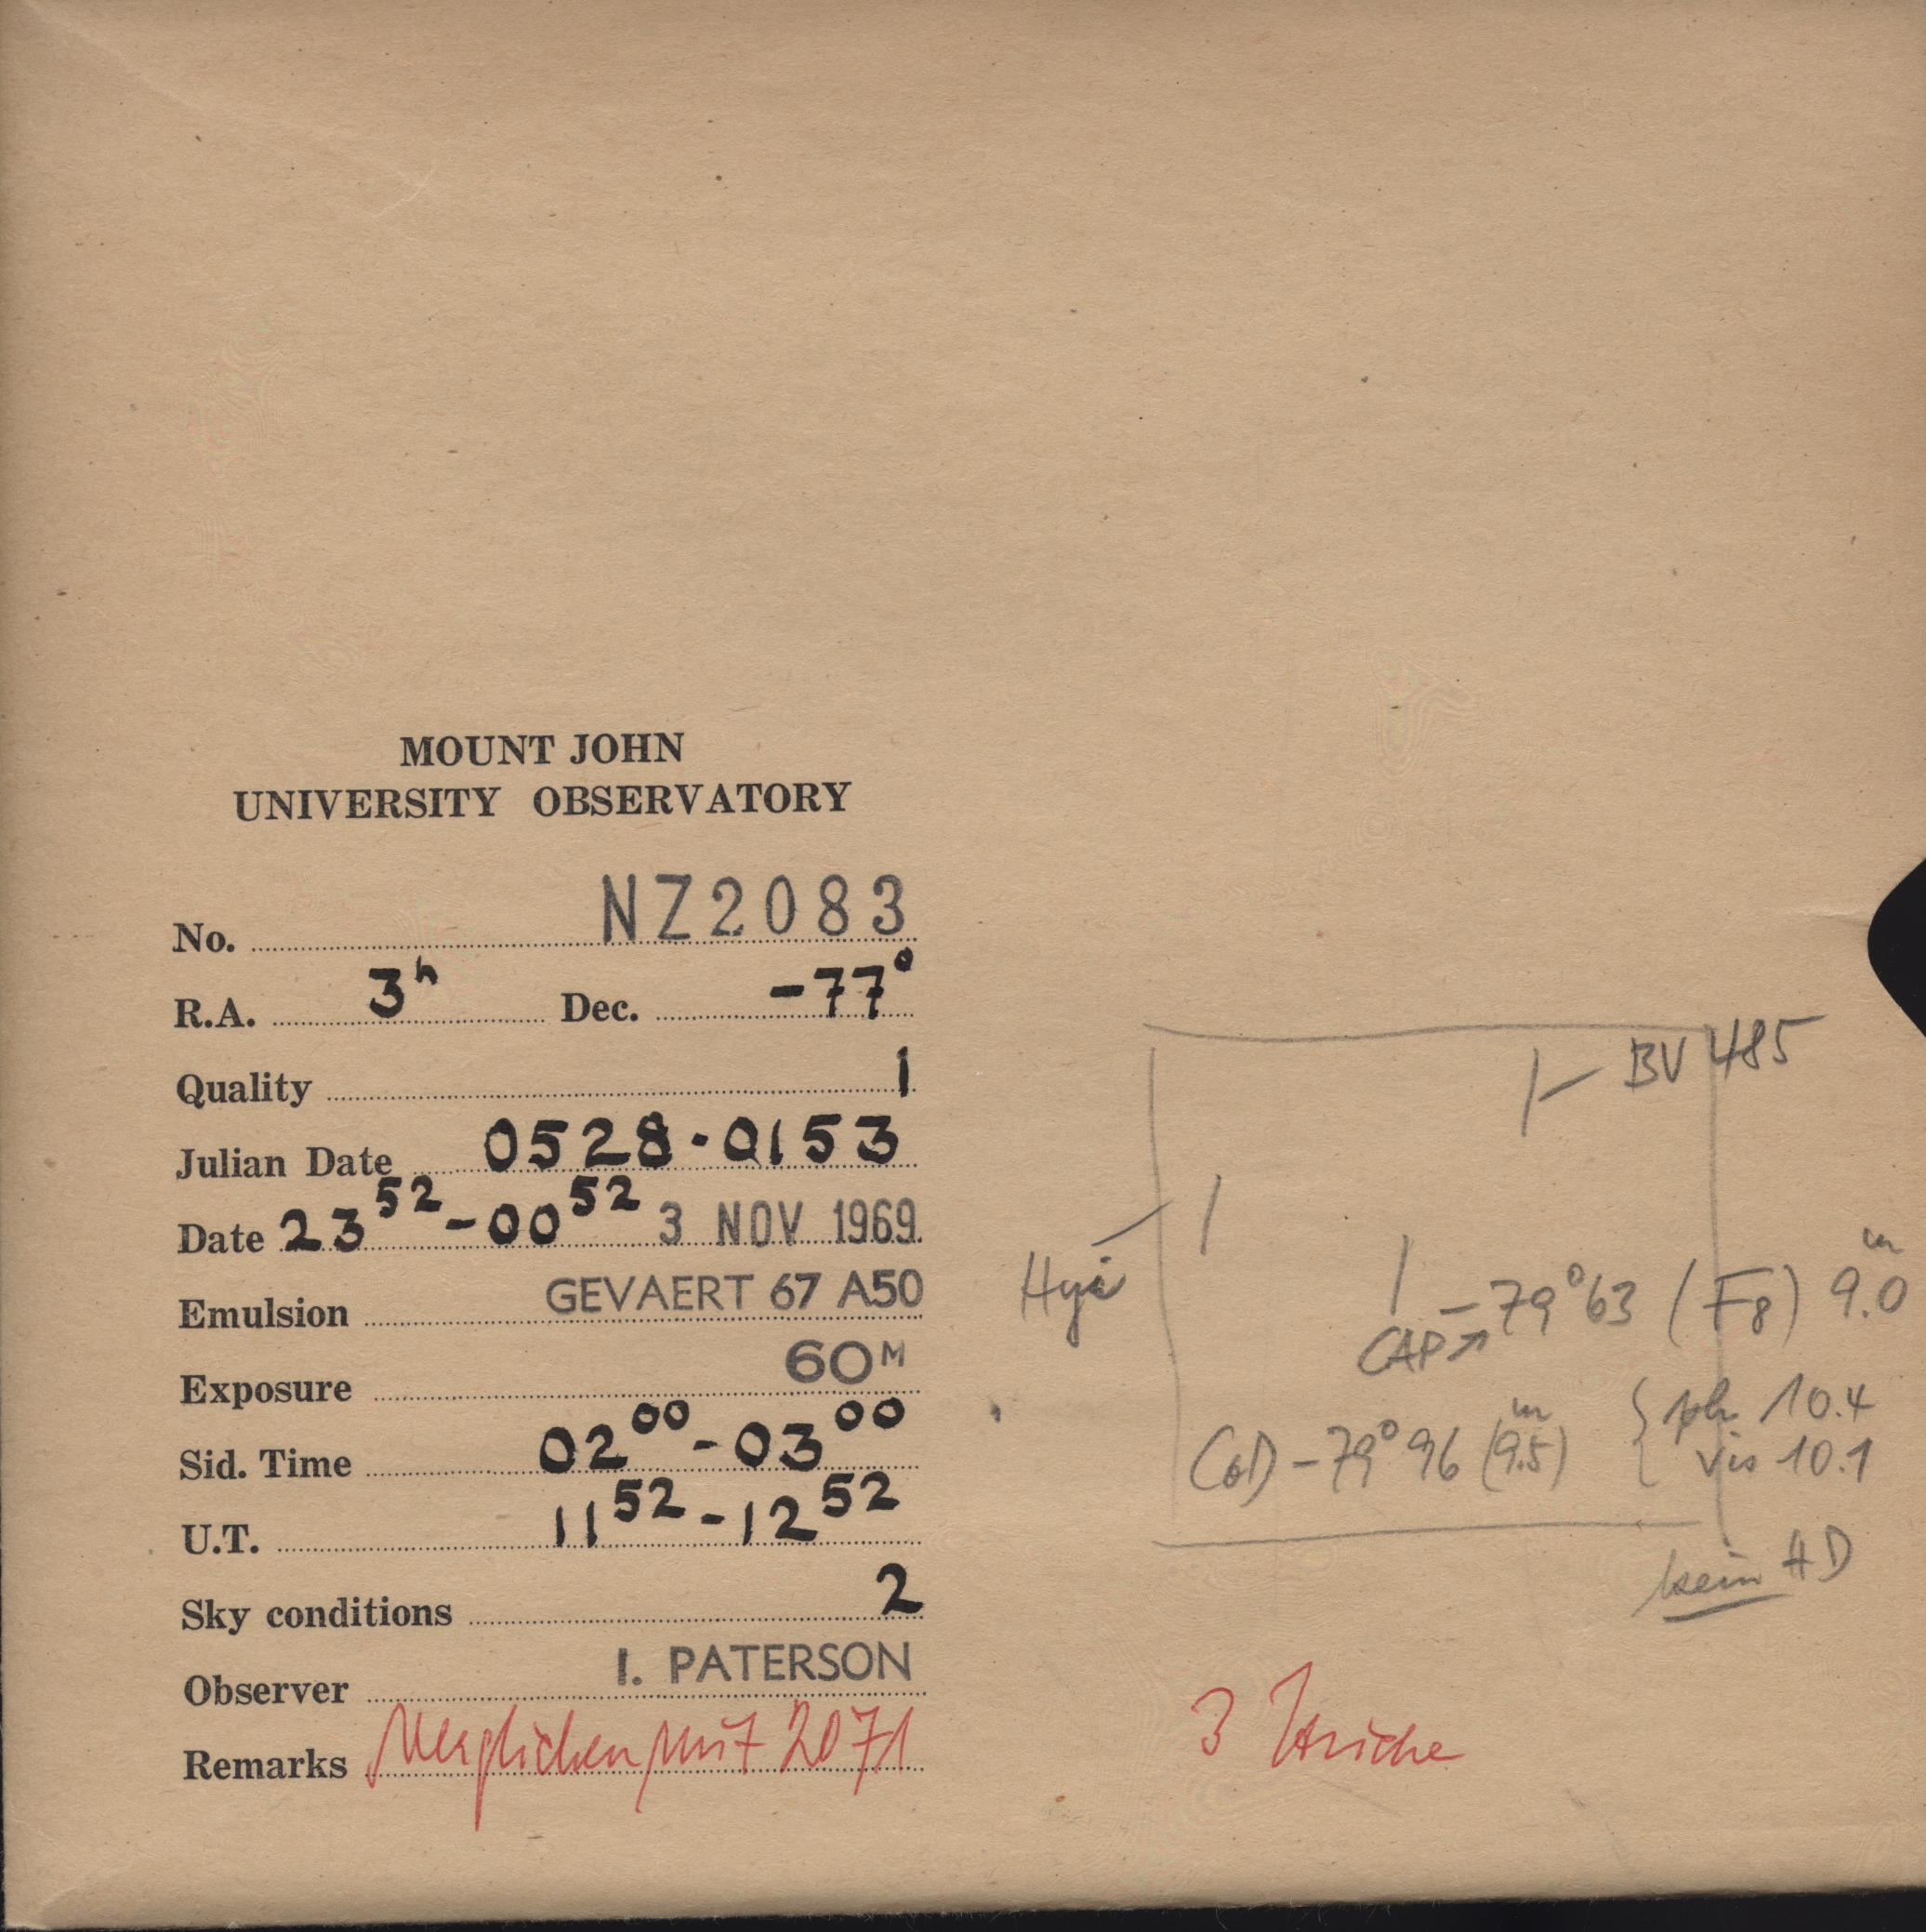 MOUNT JOHN
UNIVERSITY OBSERVATORY
No. NZ2083
R.A. 3ʰ Dec. -77°
Quality 1
Julian Date 0528.0153
Date 23⁵² - 00⁵² 3 NOV 1969
Emulsion GEVAERT 67 A50
Exposure 60ᴹ
Sid. Time 02⁰⁰ - 03⁰⁰
U.T. 11⁵² - 12⁵²
Sky conditions 2
Observer I. PATERSON
Remarks Verglichen mit 2071
BV 485
Hyi
-79°63 (F8) 9.0ᵐ
CAP ↗
CoD -79°96 (9.5ᵐ) { ph 10.4
vis 10.1
kein HD
3 Striche